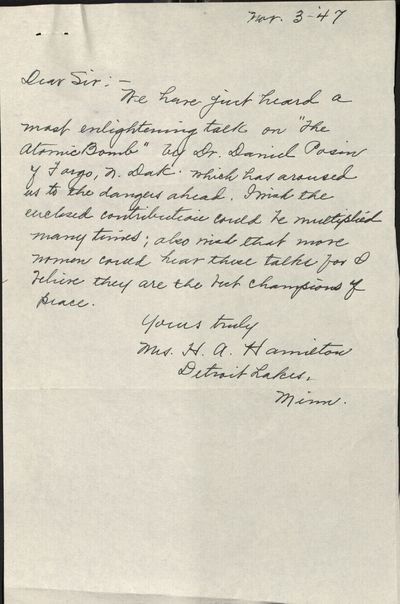 Nov. 3-47
Dear Sir:-
We have just heard a
most enlightening talk on "The
Atomic Bomb" by Dr. Daniel Posin
of Fargo, N. Dak. which has aroused
us to the dangers ahead. I wish the
enclosed contribution could be multiplied
many times; also wish that more
women could hear these talks for I
believe they are the best champions of
peace.
Yours truly
Mrs. H. A. Hamilton
Detroit Lakes,
Minn.